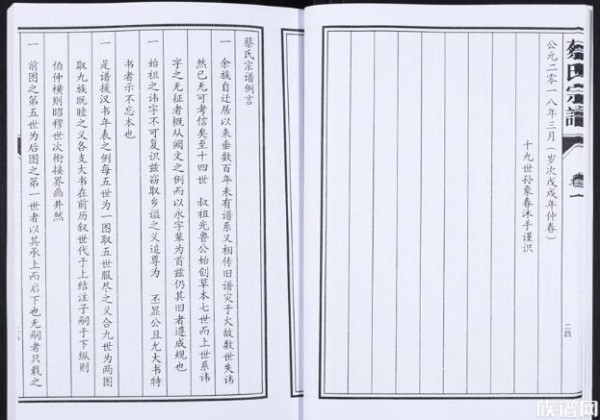 蔡氏宗譜
卷一
二四
公元二零一八年三月(岁次戊戌年仲春)
十九世孙章春沐手谨识
蔡氏宗谱例言
一 余族自迁居以来垂数百年未有谱系又相传旧谱灾于火故数世失讳
然已无可考信矣至十四世 叔祖光鲁公始创草本七世而上世系讳
字之无征者概从阙文之例而以永字辈为首兹仍其旧者遵成规也
一 始祖之讳字不可复识兹窃取乡谥之义追尊为 丕显公且尤大书特
书者示不忘本也
一 是谱拔汉书年表之例每五世为一图取五世服尽之义合九世为两图
取九族既睦之义各支大书在前历叙世代于上结注子嗣于下纵则
伯仲横则昭穆世次衔接界画井然
一 前图之第五世为后图之第一世者以其承上而启下也无嗣者只载之
族谱网